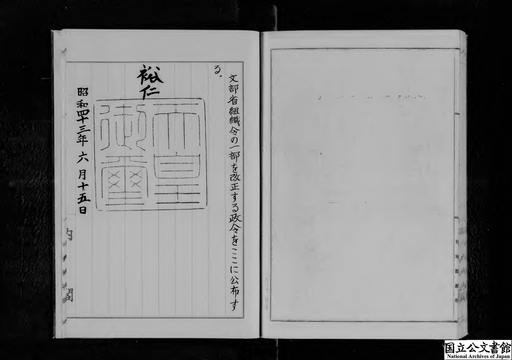 文部省組織令の一部を改正する政令をここに公布す
る。
裕仁
天皇
御璽
昭和四十三年六月十五日
内閣
国立公文書館
National Archives of Japan